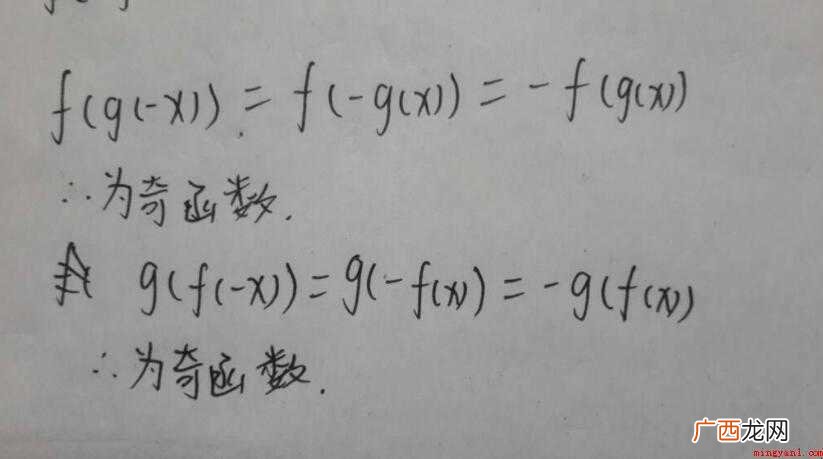 f(g(-x)) = f(-g(x)) = -f(g(x))
∴为奇函数.
g(f(-x)) = g(-f(x)) = -g(f(x))
∴为奇函数.
广西龙网
mingyan1.com